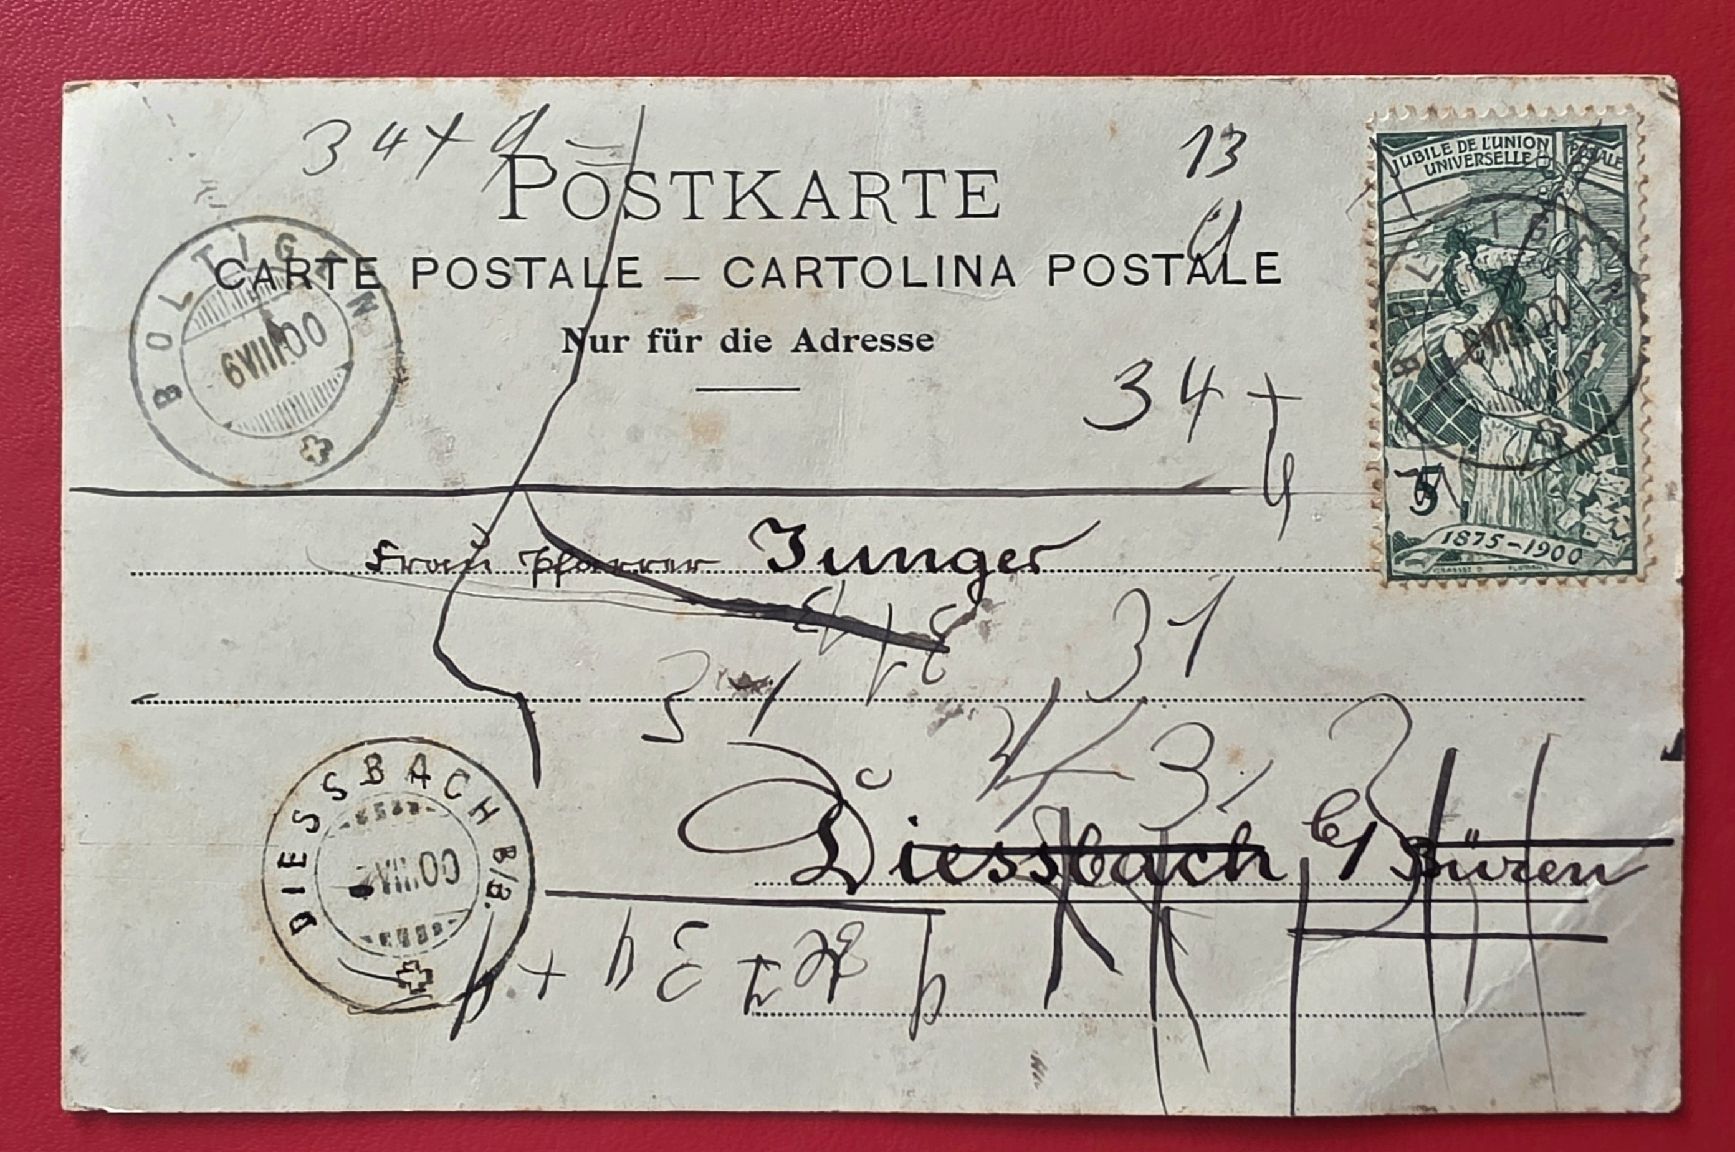 34+9=
13
9
POSTKARTE
CARTE POSTALE — CARTOLINA POSTALE
Nur für die Adresse
BOLTIGEN
6 VIII 00
JUBILE DE L'UNION POSTALE
UNIVERSELLE
BOLTIGEN
6 VIII 00
5
1875-1900
34+
Frau Pfarrer Junger
31
31
Diessbach b/ Büren
DIESSBACH B/B.
VIII 00